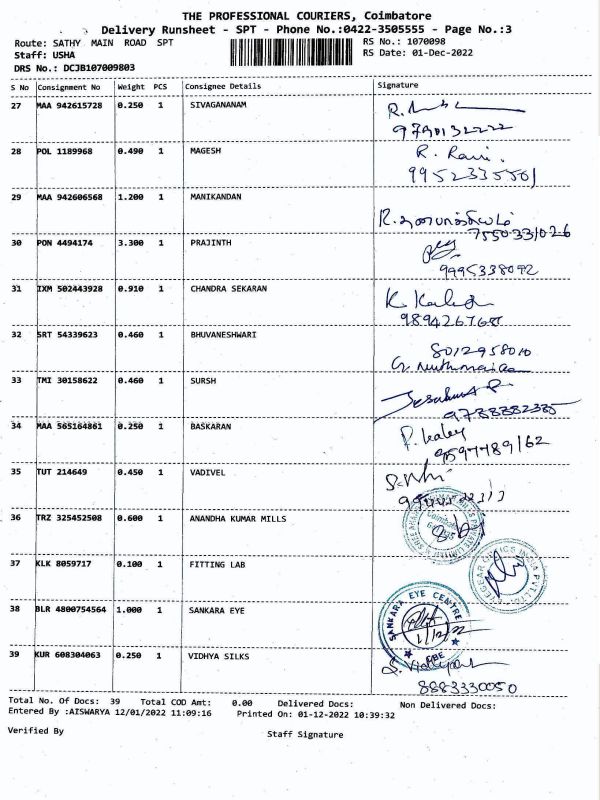 THE PROFESSIONAL COURIERS, Coimbatore
Delivery Runsheet - SPT - Phone No.:0422-3505555 - Page No.:3
Route: SATHY MAIN ROAD SPT
RS No.: 1070098
Staff: USHA
RS Date: 01-Dec-2022
DRS No.: DCJB107009803
S No Consignment No Weight PCS Consignee Details Signature
27 MAA 942615728 0.250 1 SIVAGANANAM
9790132222
28 POL 1189968 0.490 1 MAGESH R. Ravi.
9952335501
29 MAA 942606568 1.200 1 MANIKANDAN
7550331026
30 PON 4494174 3.300 1 PRAJINTH
9995338092
31 IXM 502443928 0.910 1 CHANDRA SEKARAN
32 SRT 54339623 0.460 1 BHUVANESHWARI
8012958010
33 TMI 30158622 0.460 1 SURSH
34 MAA 565164861 0.250 1 BASKARAN
35 TUT 214649 0.450 1 VADIVEL
36 TRZ 325452508 0.600 1 ANANDHA KUMAR MILLS
37 KLK 8059717 0.100 1 FITTING LAB
38 BLR 4800754564 1.000 1 SANKARA EYE
SANKARA EYE CENTRE
1/12/22
39 KUR 608304063 0.250 1 VIDHYA SILKS
8883330050
Total No. Of Docs: 39 Total COD Amt: 0.00 Delivered Docs: Non Delivered Docs:
Entered By :AISWARYA 12/01/2022 11:09:16 Printed On: 01-12-2022 10:39:32
Verified By
Staff Signature